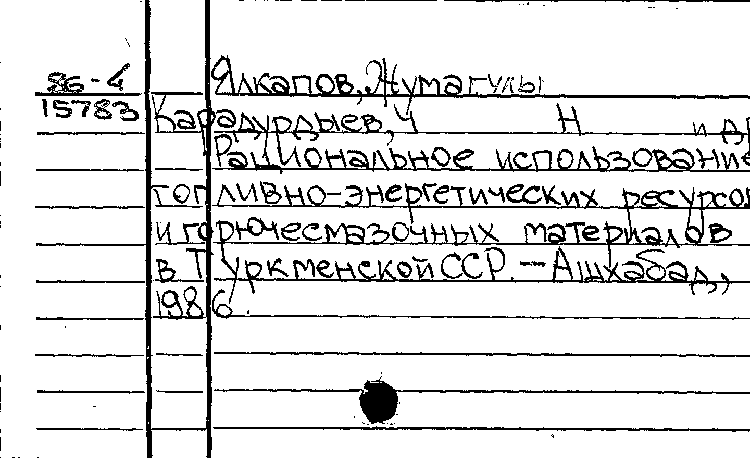 86-4
15783
Ялкапов, Жумагулы
Карадурдыев, Ч Н и др
Рациональное использование
топливно-энергетических ресурсов
и горючесмазочных материалов
в Туркменской ССР. - Ашхабад,
1986.